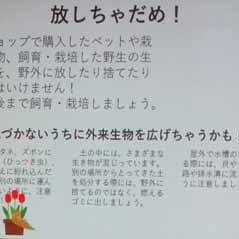 放しちゃだめ！
ョップで購入したペットや栽
物、飼育・栽培した野生の生
を、野外に放したり捨てたり
はいけません！
後まで飼育・栽培しましょう。
づかないうちに外来生物を広げちゃうかも
タネ、ズボンに
（ひっつき虫）、
に紛れ込んだ
別の場所に運ん
土の中には、さまざまな
生き物が混じっています。
別の場所からとってきた土
を処分する際には、野外に
捨てるのではなく、燃える
ゴミに出しましょう。
屋外で水槽の
る際には、貝や
路や排水溝に流
うに注意しまし